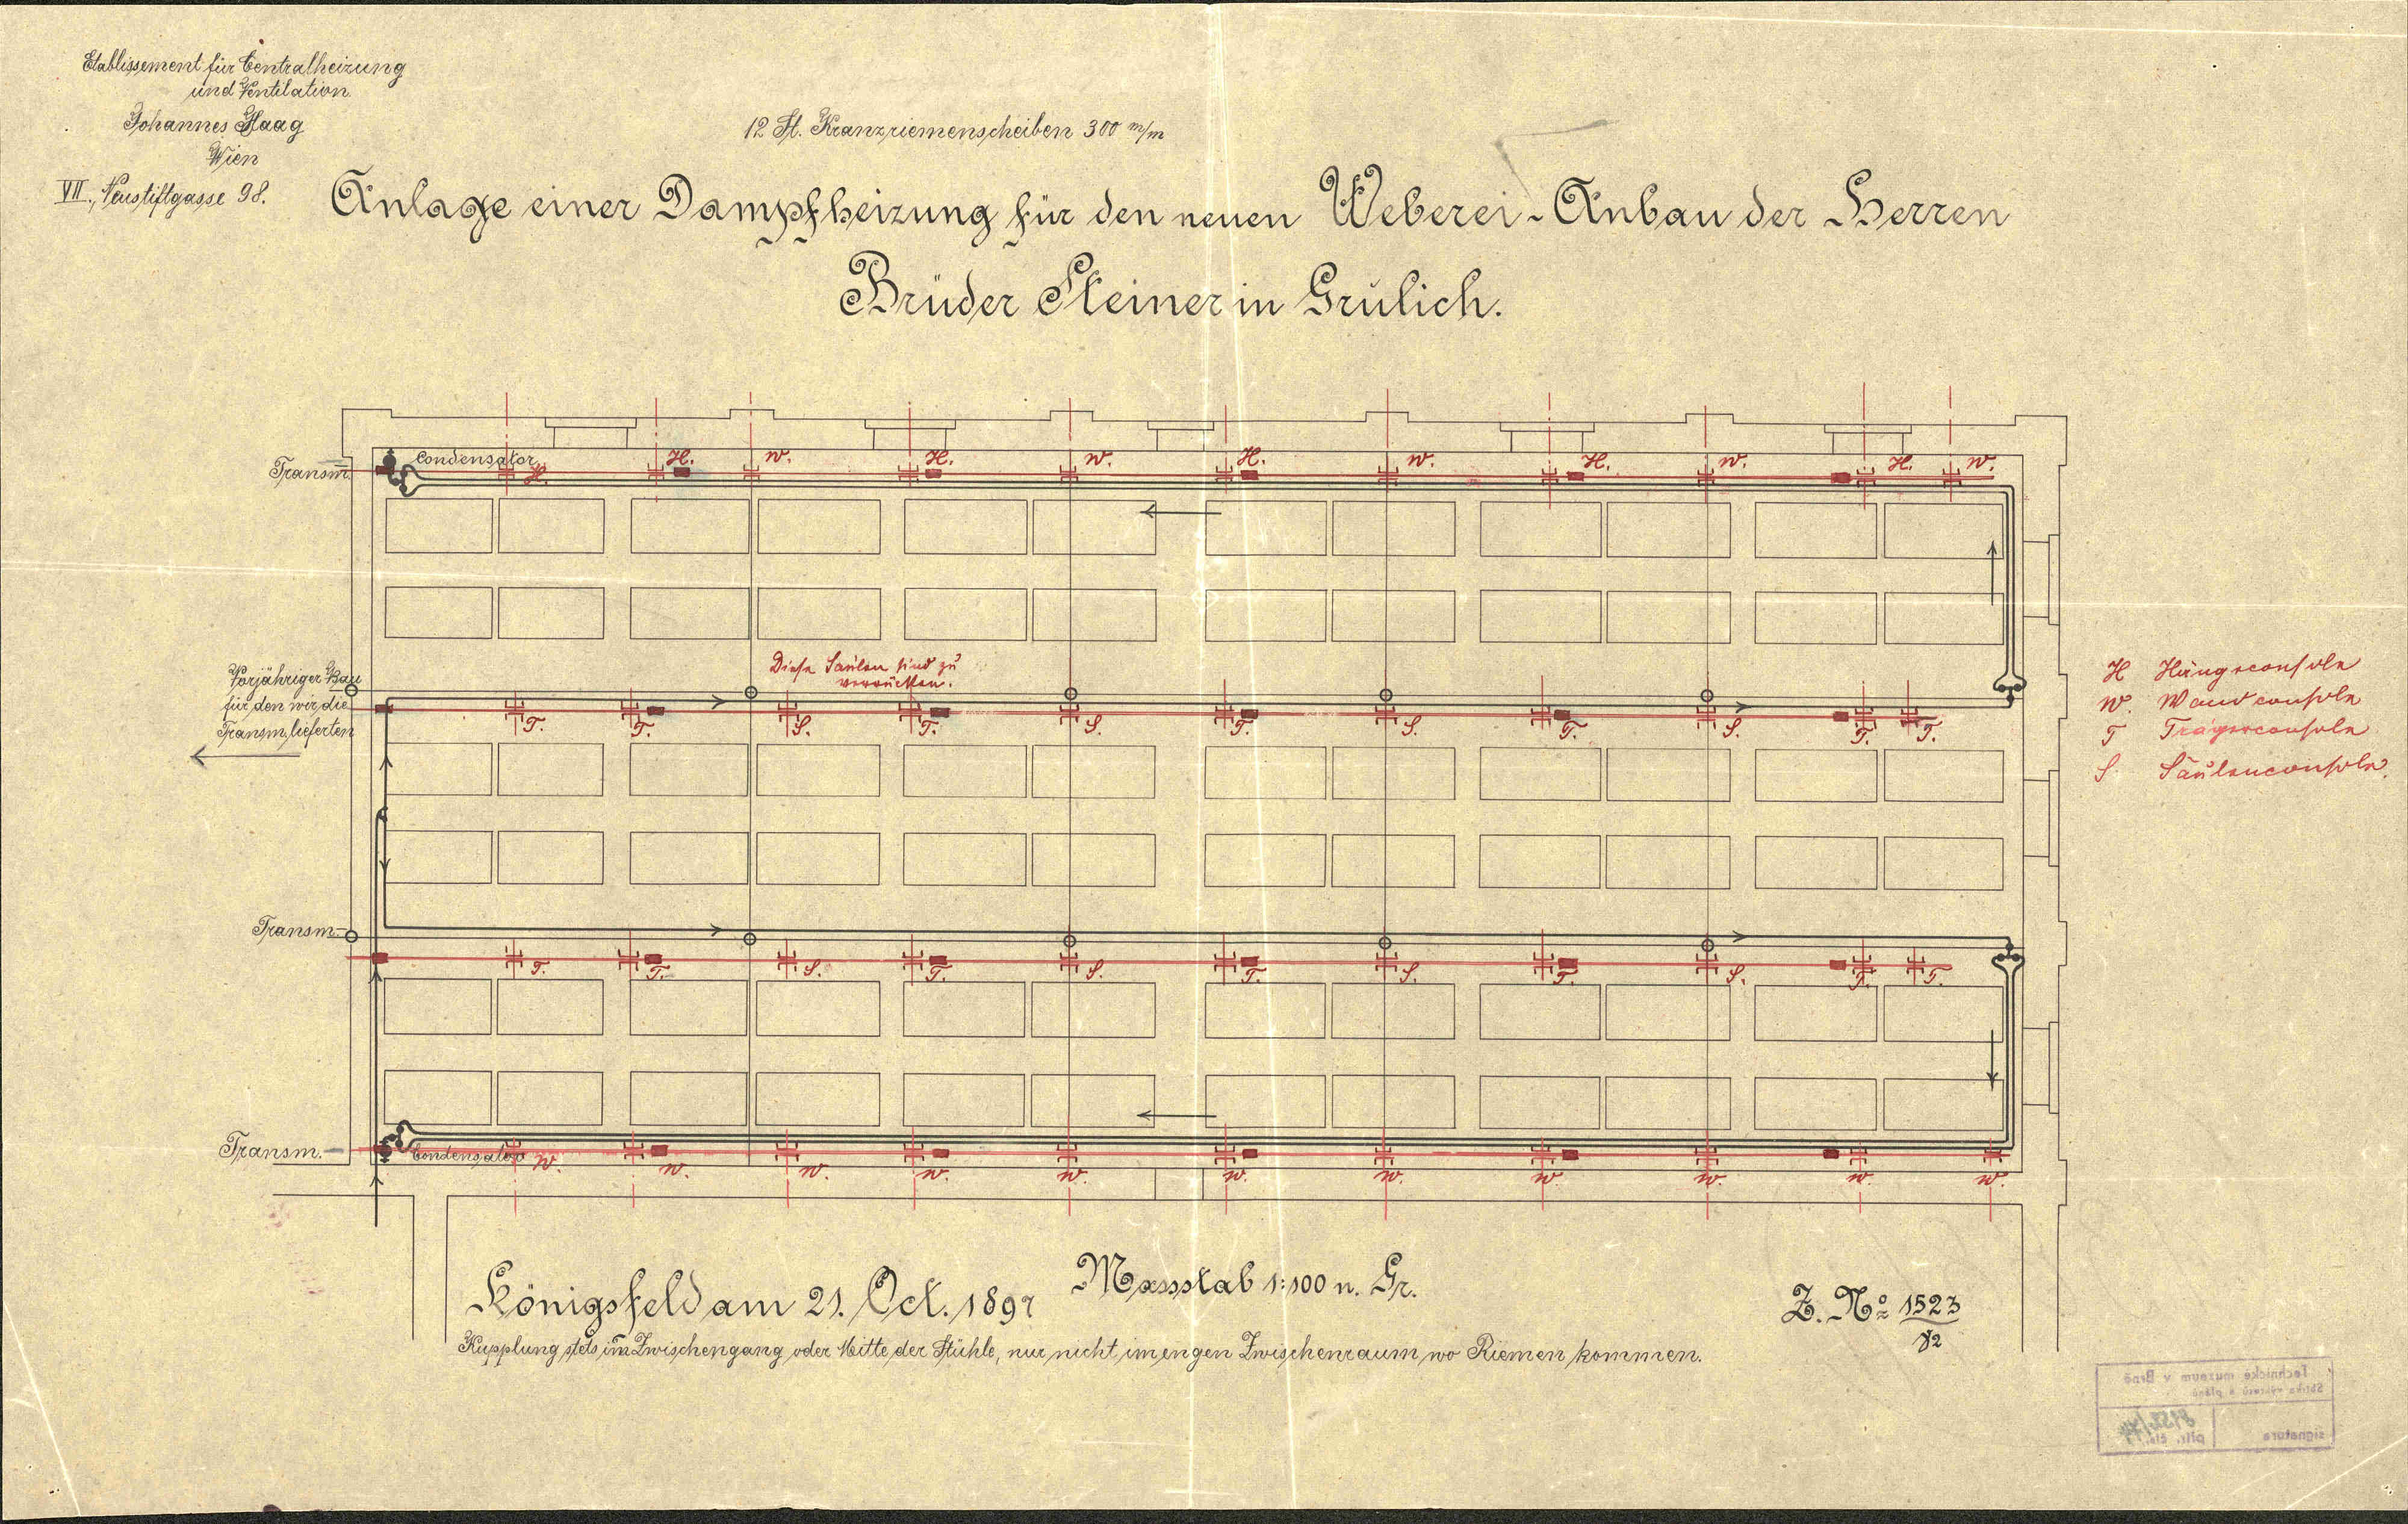 Etablissement für Centralheizung
und Ventilation
Johannes Haag
Wien
VII., Neustiftgasse 98.
12 St. Kranzriemenscheiben 300 m/m
Anlage einer Dampfheizung für den neuen Weberei-Anbau der Herren
Brüder Steiner in Grulich.
Transm.
Condensator
H. H. W. H. W. H. W. H. W. H. W.
Vorjähriger Bau
für den wir die
Transm. lieferten
Diese Säulen sind zu
verrücken.
T. T. S. T. S. T. S. T. S. T. T.
H Hängeconsole
W. Wandconsole
T Trägerconsole
S. Säulenconsole.
Transm.
T. T. S. T. S. T. S. T. S. T. T.
Transm.
Condensator
W. W. W. W. W. W. W. W. W. W. W.
Königsfeld am 21. Oct. 1897
Massstab 1:100 n. Gr.
Z. No 1523
82
Kupplung stets im Zwischengang oder Mitte der Stühle, nur nicht im engen Zwischenraum wo Riemen kommen.
Technické muzeum v Brně
Sbírka výkresů a plánů
signatura
přír. čís.